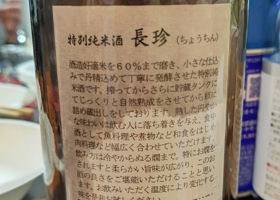 特別純米酒 長珍(ちょうちん)
酒造好適米を60%まで磨き、小さな仕込
みで丹精込めて丁寧に発酵させた特別純
米酒です。搾ってからさらに貯蔵タンクに
てじっくりと自然熟成をさせてから瓶に
詰め蔵出しをしております。熟した円やか
な味わいは飲む人に落ち着きを与え、食中
酒として魚料理や煮物など和食をはじめ
肉料理など幅広く合わせていただけます。
飲み方は冷やからぬる燗まで。特にお燗を
されますと柔らかい旨味が広がり、このお
酒の良さをご堪能いただけることと思い
ます。お飲みいただく温度により変化する